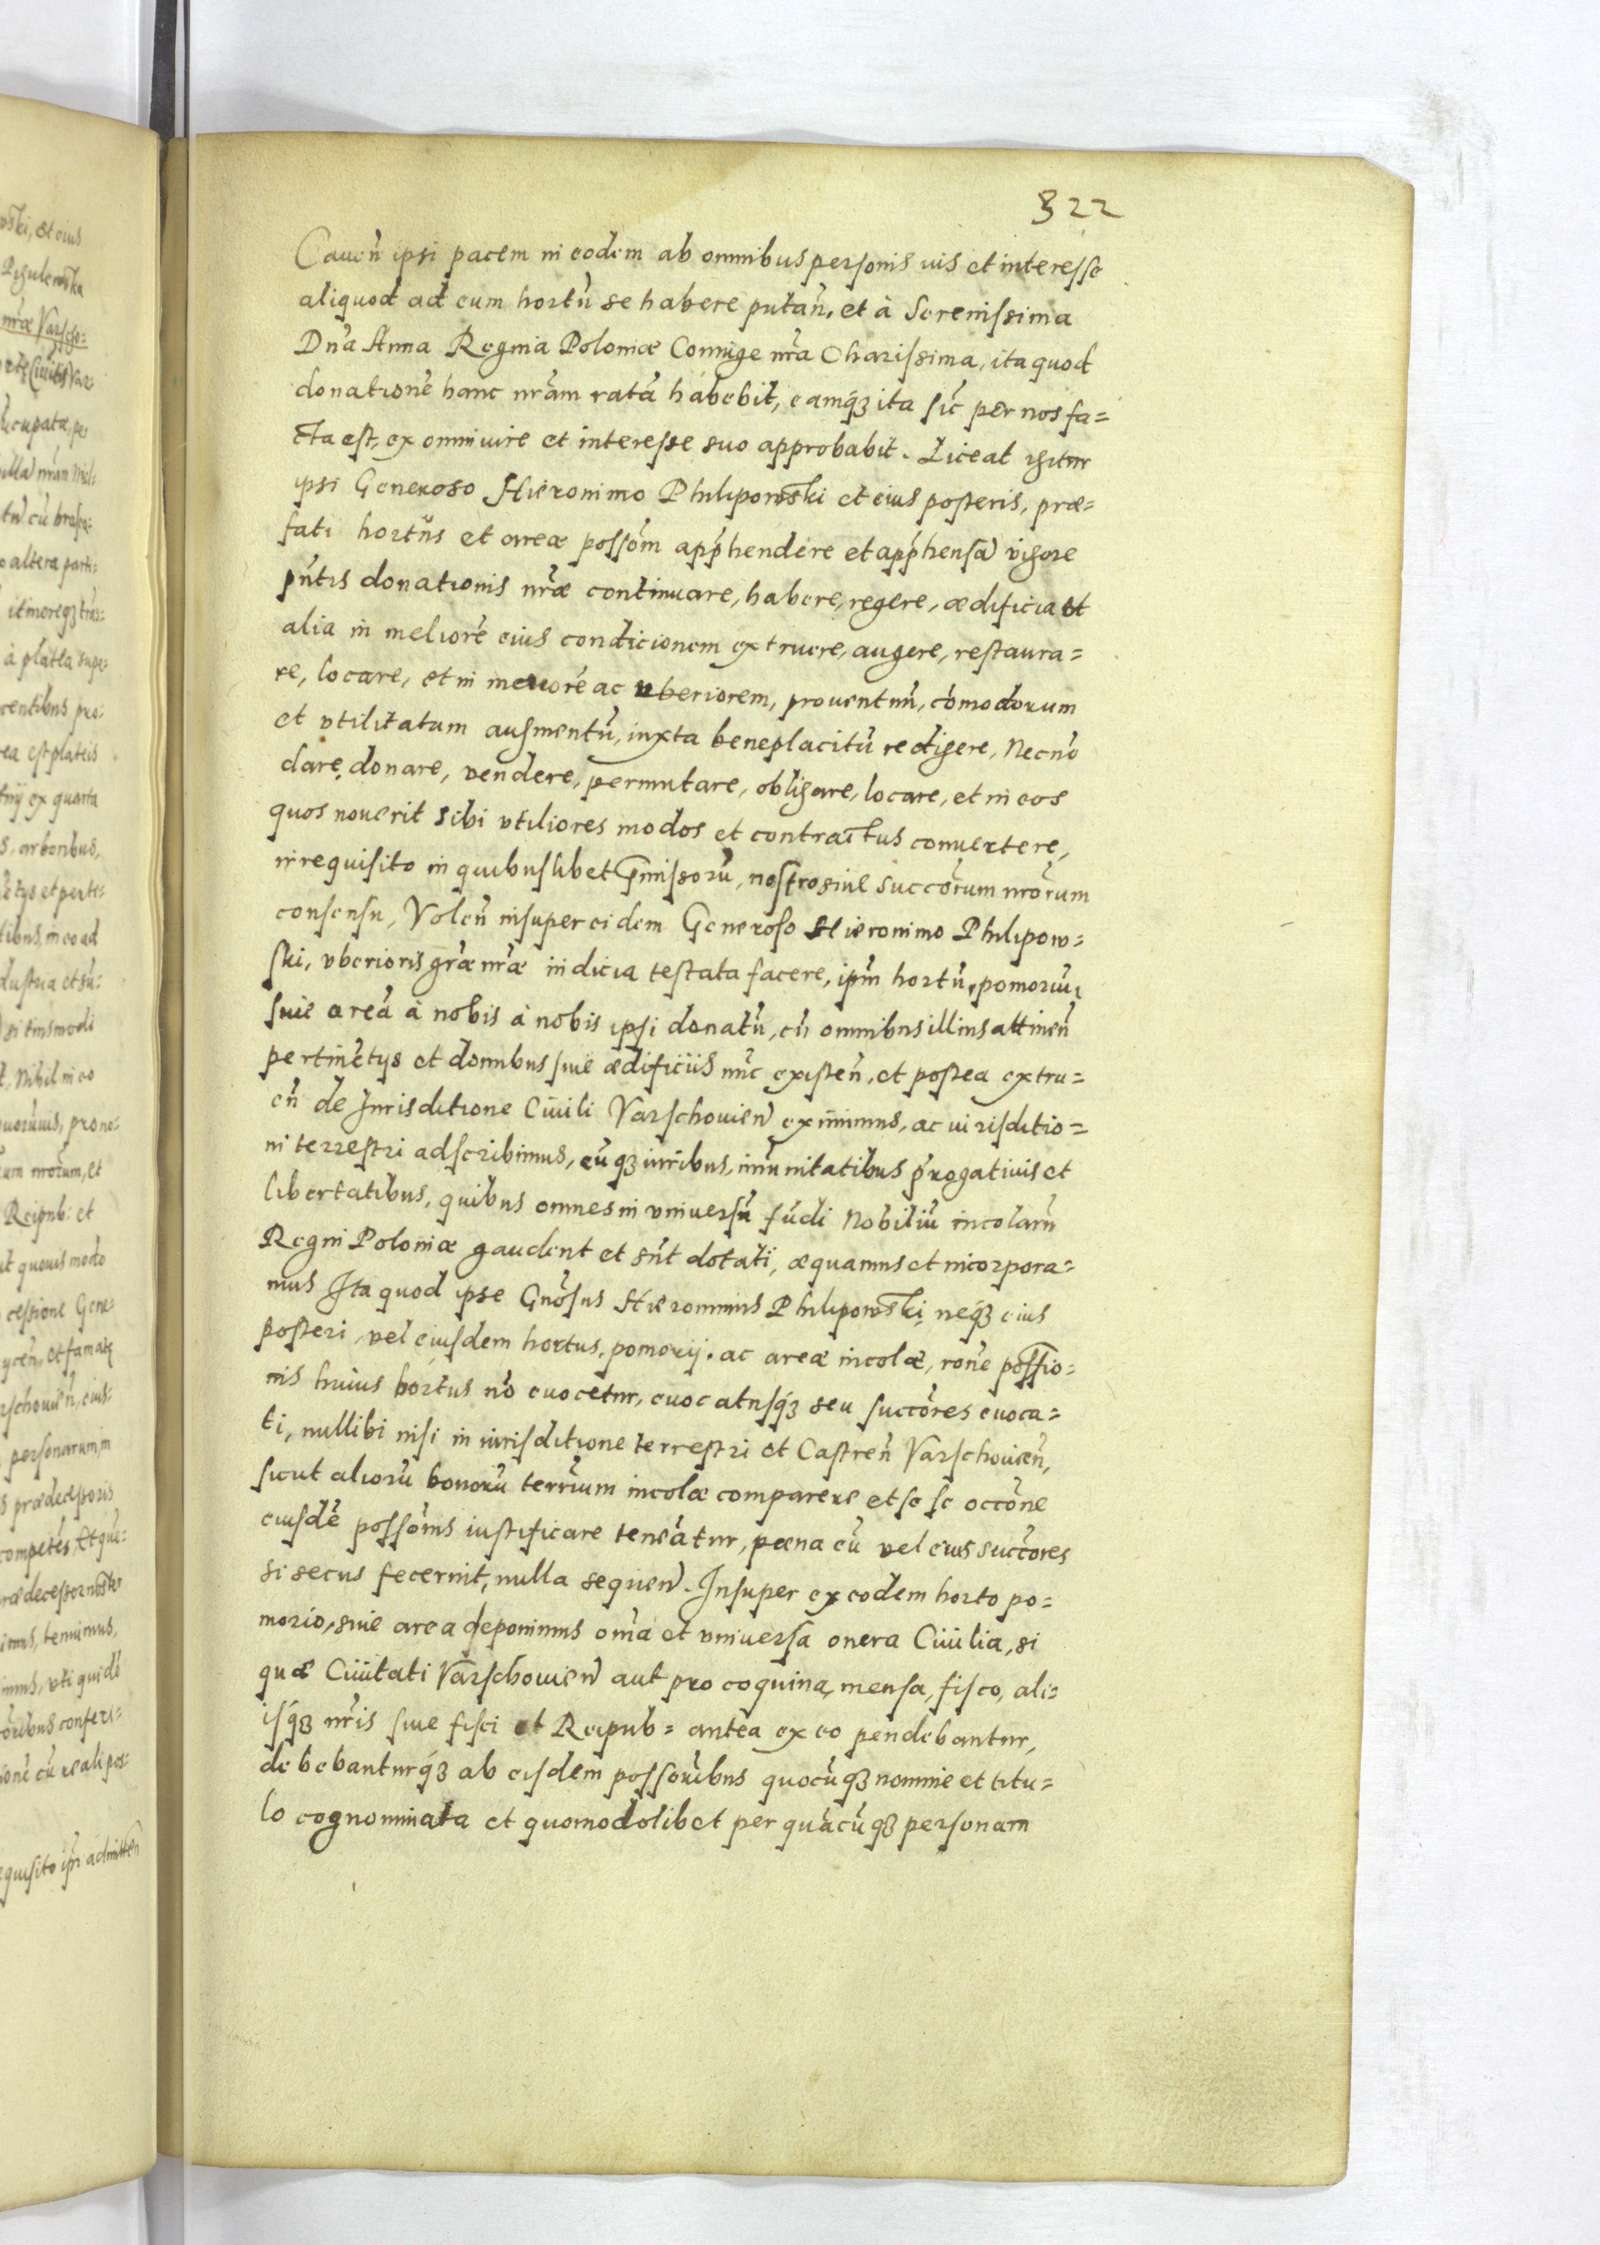 322
Cauen̄ ipsi pacem in eodem ab omnibus personis ius et interesse
aliquod ad eum hortū se habere putan̄, et à Serenissima
Dnā Anna Regina Poloniæ Coniuge nrā Charissima, ita quod
donationē hanc nrām ratā habebit, eamq́ꝫ ita sic̄ per nos fa=
cta est, ex omni iure et interesse suo approbabit. Liceat igitur
ipsi Generoso Hieronimo Philipowski et eius posteris, præ=
fati hortus et areæ possōm app̄hendere et app̄hensā vigore
pn̄tis donationis nrǣ continuare, habere, regere, ædificia et
alia in meliorē eius condicionem extruere, augere, restaura=
re, locare, et in meliorē ac vberiorem, prouentuū, cōmodorum
et vtilitatum augmentū, iuxta beneplacitū redigere, Necnō
dare, donare, vendere, permutare, obligare, locare, et in eos
quos nouerit sibi vtiliores modos et contractus conuertere,
irrequisito in quibuslibet p̄missorū, nostro siue succōrum nrōrum
consensu, Volen̄ insuper eidem Generoso Hieronimo Philipow=
ski, vberioris grǣ nrǣ indicia testata facere, ipm̄ hortū, pomoriū,
siue areā à nobis à nobis ipsi donatū, cū omnibus illius attinen̄
pertinētys et domibus siue ædificiis nūc existen̄, et postea extru=
en̄ de Jurisditione Ciuili Varschouien̄ eximimus, ac iurisditio=
ni terrestri adscribimus, eūqꝫ iuribus, imūnitatibus p̄rogatiuis et
libertatibus, quibus omnes in vniuersū fūdi Nobiliū incolarū
Regni Poloniæ gaudent et sūt dotati, æquamus et incorpora=
mus Ita quod ipse Gnōsus Hieronimus Philipowski, neqꝫ eius
posteri, vel eiusdem hortus, pomorij, ac areæ incolæ, ronē possio=
nis huius hortus nō euocetur, euocatusq́ꝫ seu succōres euoca=
ti, nullibi nisi in iurisditione terrestri et Castren̄ Varschouien̄,
sicut aliorū bonorū terrium incolæ comparere et se se occōne
eiusdē possōnis iustificare teneātur, pœna eū vel eius succōres
si secus fecerint, nulla sequen̄. Insuper ex eodem horto po=
morio, siue area deponimus omā et vniuersa onera Ciuilia, si
quæ Ciuitati Varschouien̄ aut pro coquina, mensa, fisco, ali=
isq́ꝫ nrīs siue fisci et Reipub= antea ex eo pendebantur,
debebanturq́ꝫ ab eisdem possoribus quocūqꝫ nomine et titu=
lo cognominata et quomodolibet per quācūqꝫ personam